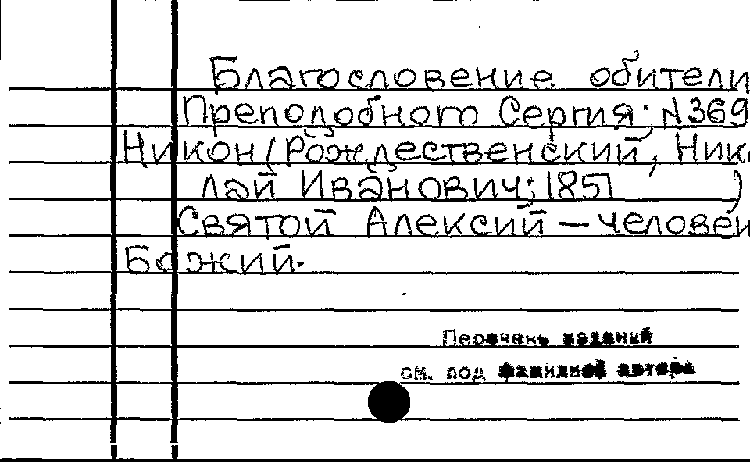 Благословение обители
Преподобного Сергия; N369
Никон (Рождественский, Нико
лай Иванович; 1851 )
Святой Алексий — человек
Божий.
Перечень изданий
см. под фамилией автора